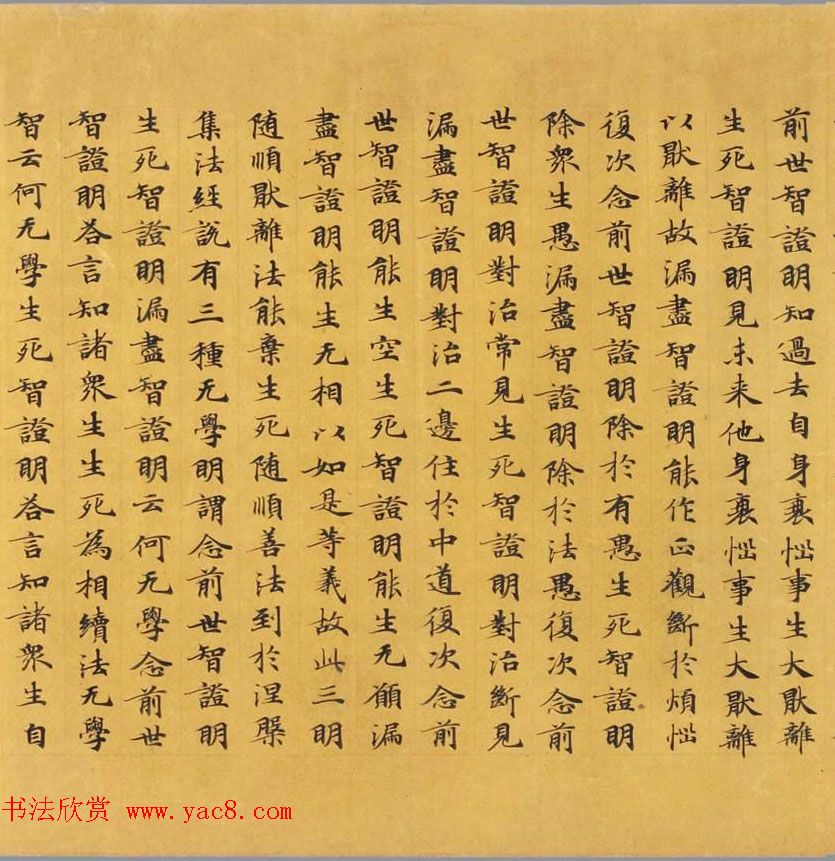 前世智證明知過去自身衰惱事生大猒離
生死智證明見未来他身衰惱事生大猒離
以猒離故漏盡智證明能作正觀斷於煩惱
復次念前世智證明除於有愚生死智證明
除衆生愚漏盡智證明除於法愚復次念前
世智證明對治常見生死智證明對治斷見
漏盡智證明對治二邊住於中道復次念前
世智證明能生空生死智證明能生无願漏
盡智證明能生无相以如是等義故此三明
随順猒離法能棄生死随順善法到於涅槃
集法經說有三種无學明謂念前世智證明
生死智證明漏盡智證明云何无學念前世
智證明荅言知諸衆生生死為相續法无學
智云何无學生死智證明荅言知諸衆生自
书法欣赏 www.yac8.com